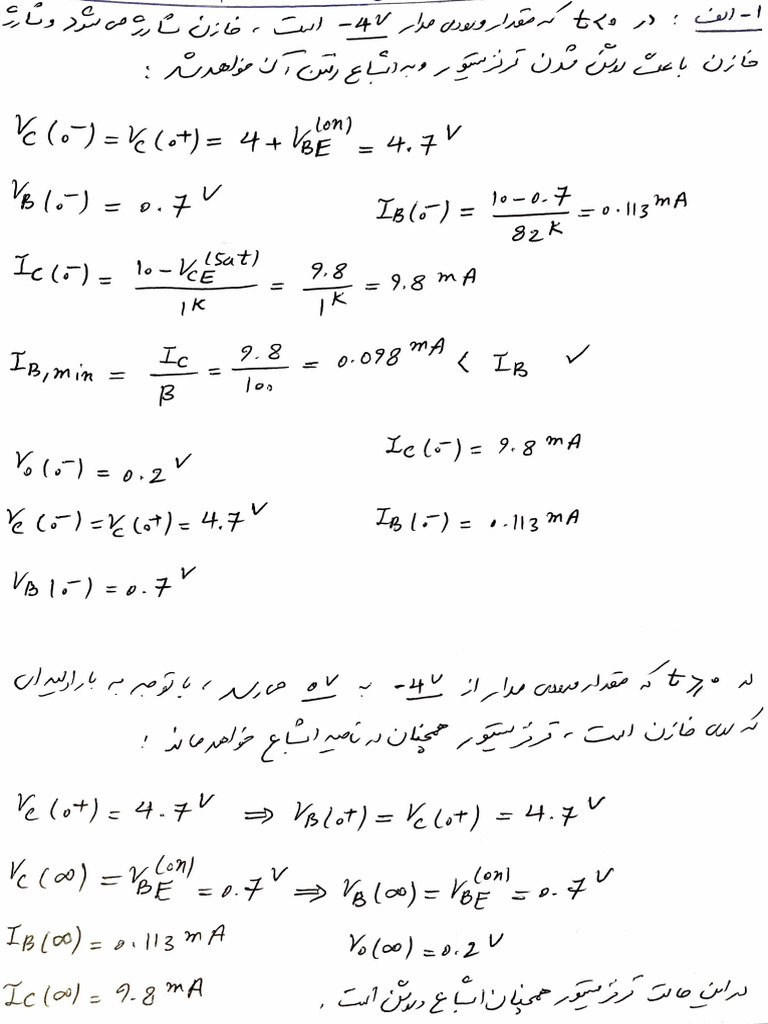 ۱- الف : در t<0 که مقدار ورودی مدار -4V است ، خازن شارژ می شود و شارژ
خازن باعث روشن شدن ترانزیستور و به اشباع رفتن آن خواهد شد :
VC(0-) = VC(0+) = 4 + VBE(on) = 4.7 V
VB(0-) = 0.7 V IB(0-) = 10-0.7 / 82K = 0.113 mA
IC(0-) = 10-VCE(sat) / 1K = 9.8 / 1K = 9.8 mA
IB,min = IC / β = 9.8 / 100 = 0.098 mA < IB ✓
Vo(0-) = 0.2 V IC(0-) = 9.8 mA
VC(0-) = VC(0+) = 4.7 V IB(0-) = 0.113 mA
VB(0-) = 0.7 V
در t≥0 که مقدار ورودی مدار از -4V به 0V می رسد ، با توجه به بار اولیه ای
که روی خازن است ، ترانزیستور همچنان در ناحیه اشباع خواهد ماند :
VC(0+) = 4.7 V ⇒ VB(0+) = VC(0+) = 4.7 V
VC(∞) = VBE(on) = 0.7 V ⇒ VB(∞) = VBE(on) = 0.7 V
IB(∞) = 0.113 mA Vo(∞) = 0.2 V
IC(∞) = 9.8 mA در این حالت ترانزیستور همچنان اشباع و روشن است .